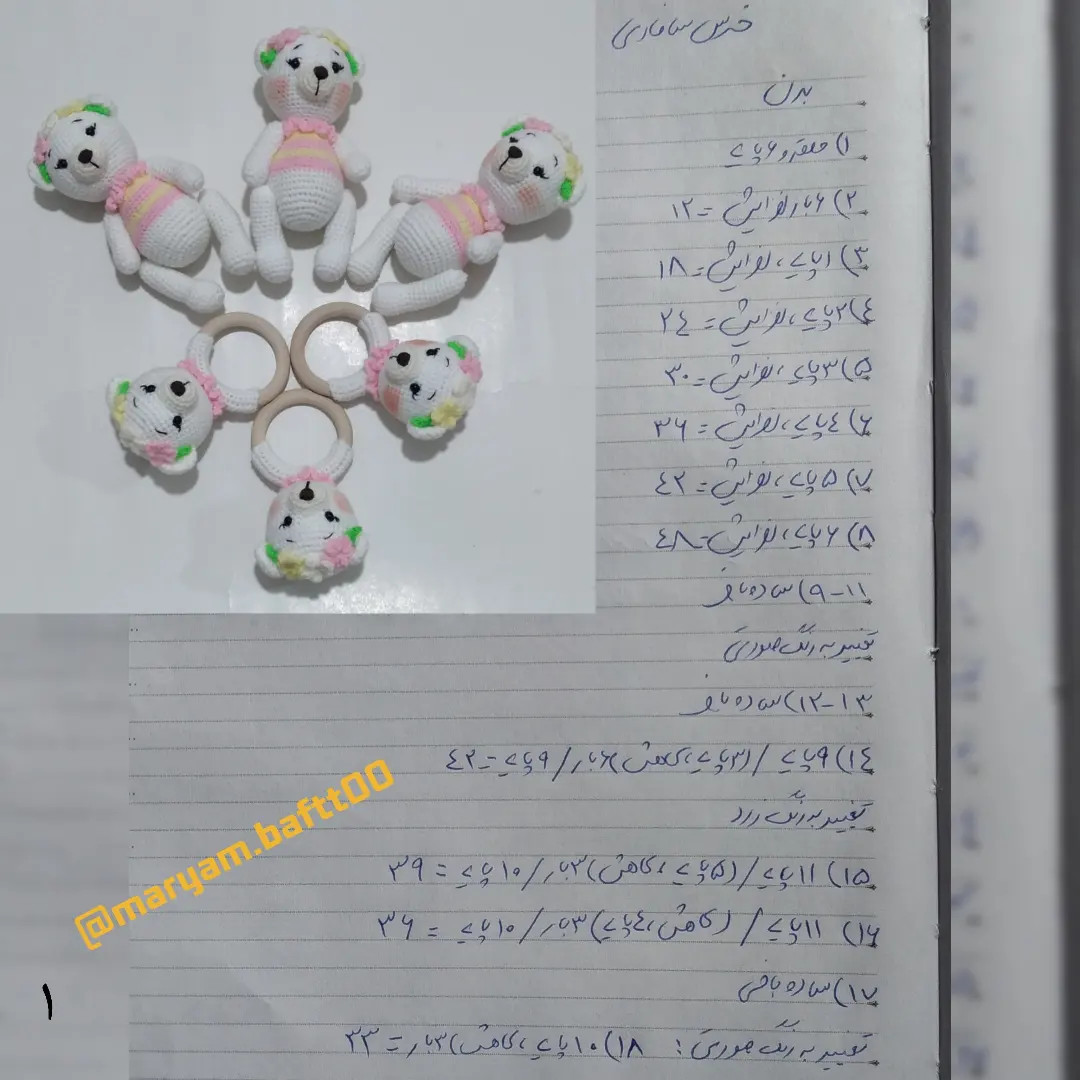 خرس سافاری
بدن
۱) حلقه و ۶ پایه
۲) ۶ بار افزایش = ۱۲
۳) ۱ پایه، افزایش = ۱۸
٤) ۲ پایه، افزایش = ۲٤
۵) ۳ پایه، افزایش = ۳۰
۶) ٤ پایه، افزایش = ۳۶
۷) ۵ پایه، افزایش = ٤۲
۸) ۶ پایه، افزایش = ٤۸
۹-۱۱) ساده باف
تغییر به رنگ صورتی
۱۲-۱۳) ساده باف
۱٤) ۹ پایه / (۳ پایه، کاهش) ۶ بار / ۹ پایه = ٤۲
تغییر به رنگ زرد
۱۵) ۱۱ پایه / (۵ پایه، کاهش) ۳ بار / ۱۰ پایه = ۳۹
۱۶) ۱۱ پایه / (کاهش، ٤ پایه) ۳ بار / ۱۰ پایه = ۳۶
۱۷) ساده بافی
تغییر به رنگ صورتی: ۱۸) ۱۰ پایه، کاهش) ۳ بار = ۳۳
@maryam.baftt00
۱